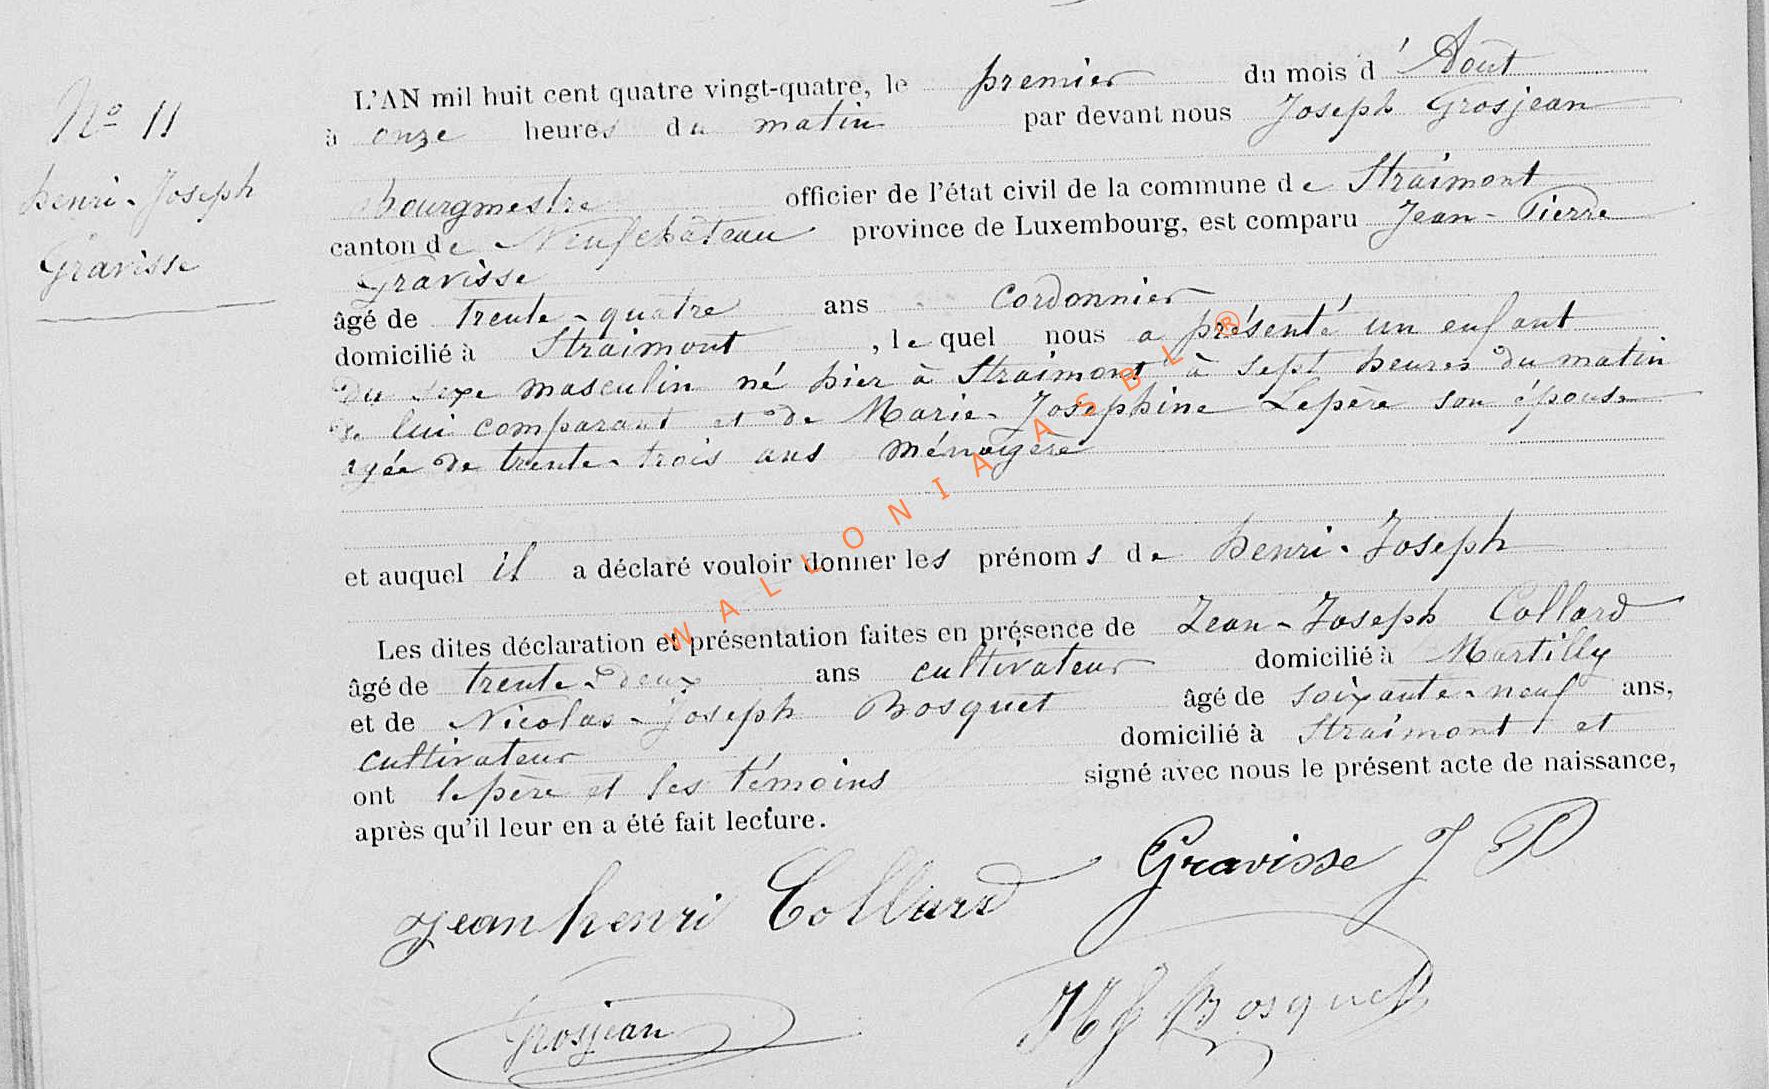 N° 11
henri-Joseph
Gravisse
L'AN mil huit cent quatre vingt-quatre, le premier du mois d'Août
à onze heures du matin par devant nous Joseph Grosjean
bourgmestre officier de l'état civil de la commune de Straimont
canton de Neufchâteau province de Luxembourg, est comparu Jean-Pierre
Gravisse
âgé de trente-quatre ans cordonnier
domicilié à Straimont, le quel nous a présenté un enfant
du sexe masculin né hier à Straimont à sept heures du matin
de lui comparant et de Marie-Josephine Lepère son épouse
agée de trente-trois ans ménagère
et auquel il a déclaré vouloir donner les prénoms de henri-Joseph
Les dites déclaration et présentation faites en présence de Jean-Joseph Collard
âgé de trente-deux ans cultivateur domicilié à Martilly
et de Nicolas-Joseph Bosquet âgé de soixante-neuf ans,
cultivateur domicilié à Straimont et
ont le père et les témoins signé avec nous le présent acte de naissance,
après qu'il leur en a été fait lecture.
jean henri Collard Gravisse J P
Grosjean Bosquet
WALLONIA ASBL ®